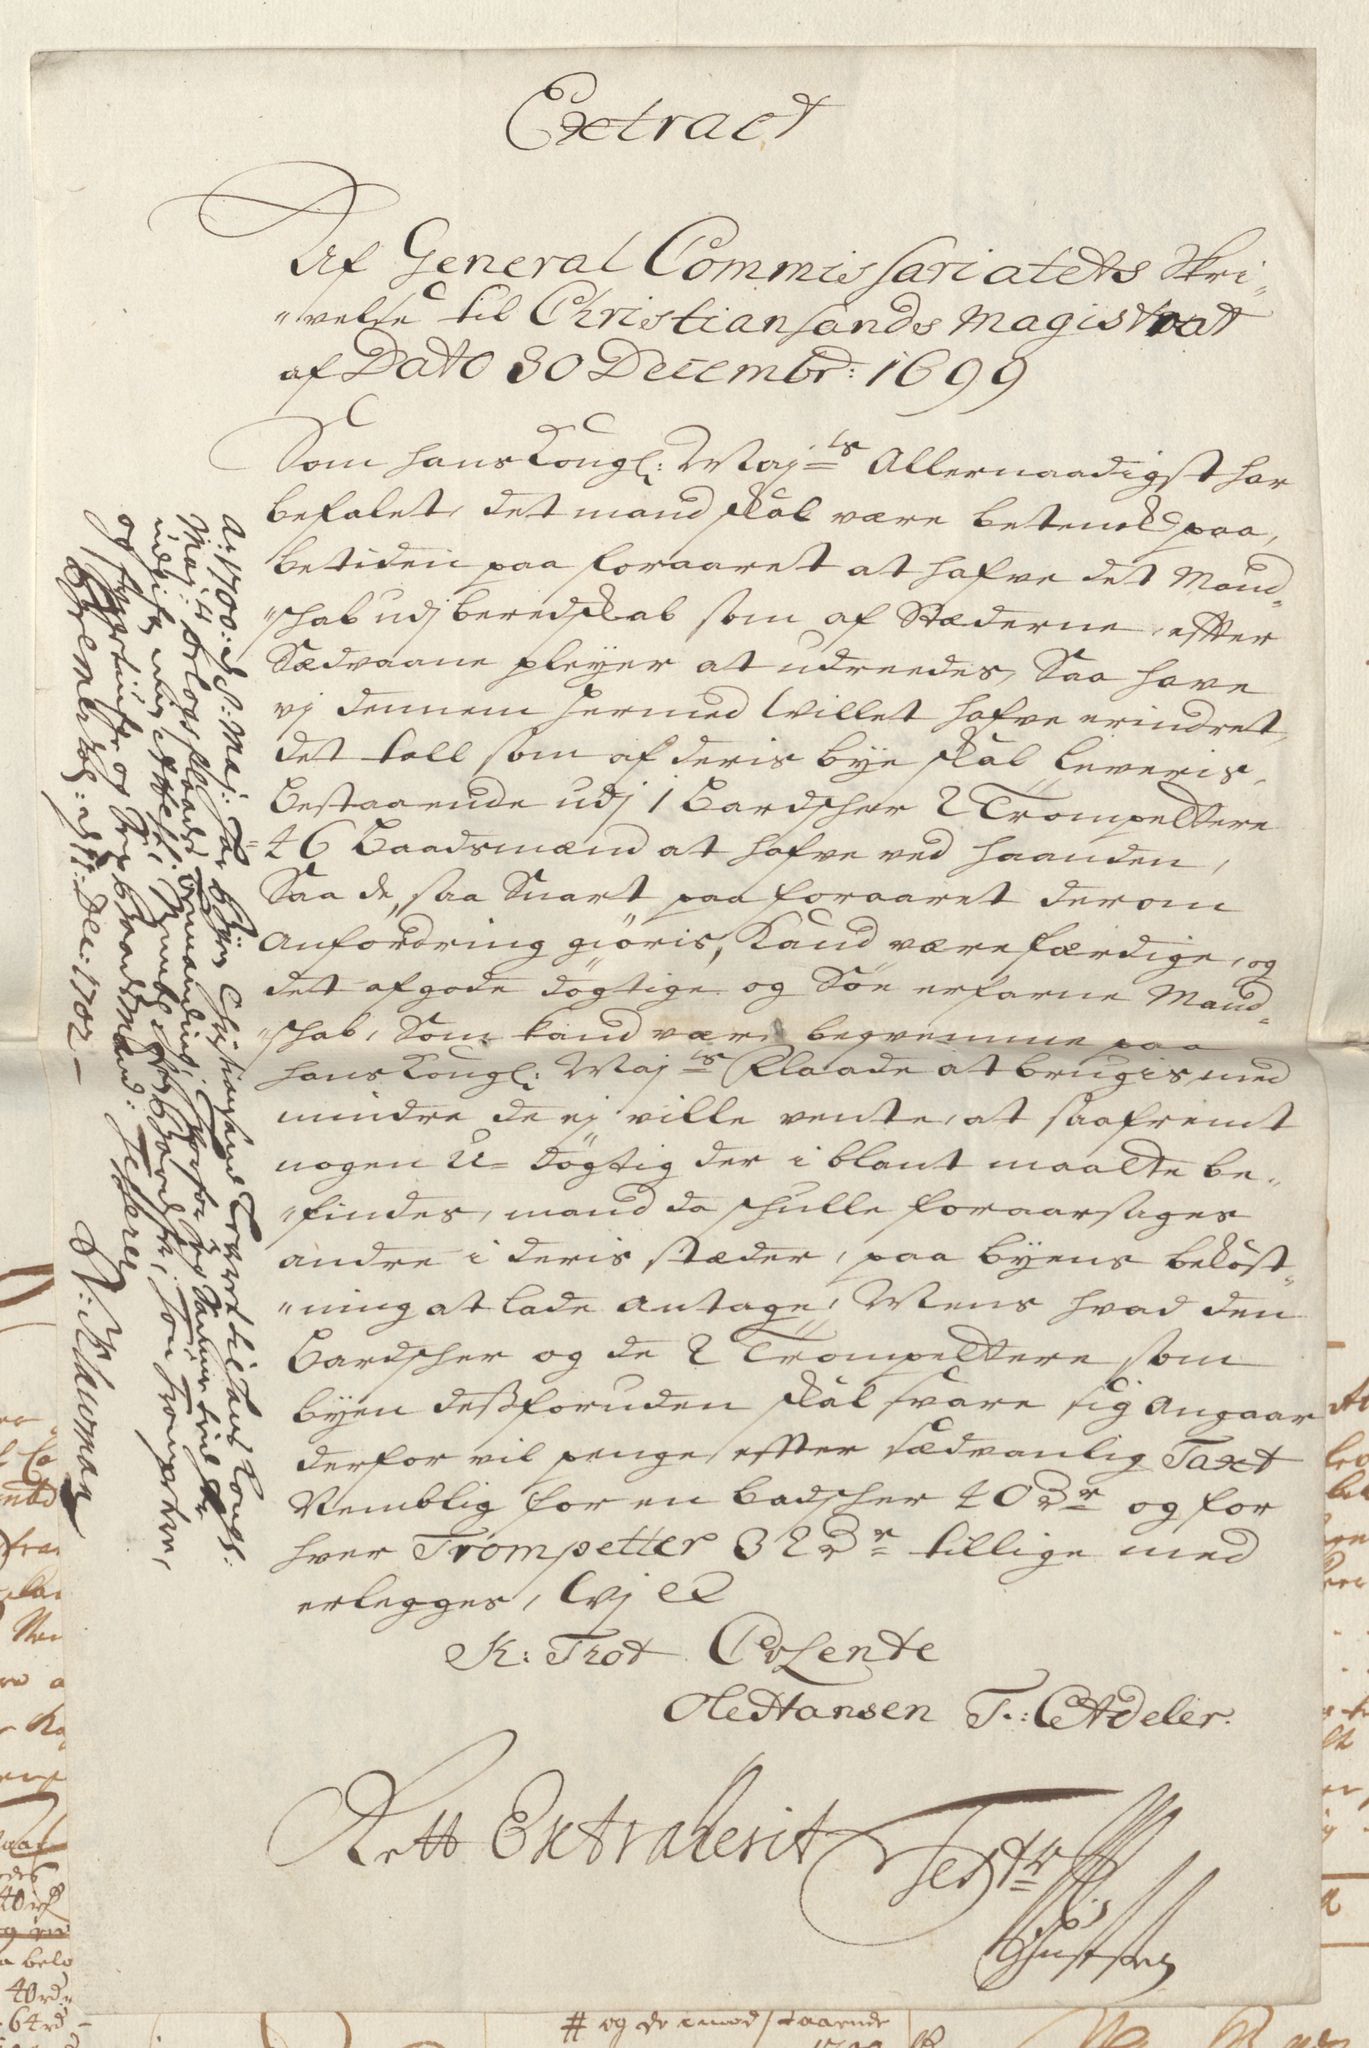 Extract
Af General Commissariatets Skri-
"velse til Christiansands Magistrat
af Dato 30 Decembr: 1699
Som hans Kongl: Maj:ts Allernaadigst har
befalet, det mand skal være betenckt paa,
betiden paa foraaret at hafve det Mand-
"schab udj beredskab som af Stæderne, effter
Sædvaane pleyer at udreedes, Saa have
vj dennem hermed villet hafve erindret,
det tall som af deris bye skal leveris,
bestaaende udj 1 Bardscher 2 Trompettere
46 Baadsmænd at hafve ved haanden,
Saa de, saa Snart paa foraaret derom
Anfordring giöris, Kand være færdige, og
det af gode dögtige og Söe erfarne Mand-
"schab, Som kand være beqvemme paa
hans Kongl: Maj:ts Flaade at brugis med
mindre de ej ville vente, at saafremt
nogen U-dögtig der i blant maatte be-
"findes, mand da schulle foraarsages
andre i deris stæder, paa byens bekost-
"ning at lade Antage, Mens hvad den
Bardscher og de 2 Trompettere som
byen dessforuden skal svare sig Angaar
derfor vil penge effter sædvanlig Taxt
Nemblig for en badscher 40 Rdr og for
hver Trompetter 32 Rdr tillige med
erlegges, Vj etc
K: Trot C v Lente
Ole Hansen F: C Adeler.
Rett Extraherit Test:r
A: 1700: d 8: Maj: har Byen Christiansand Leveret til hans Kongl:
Maj:ts orlogs flaade
og fyrretiufve og Sex baadsmænd: Testerer
d 11: Dec: 1702 –